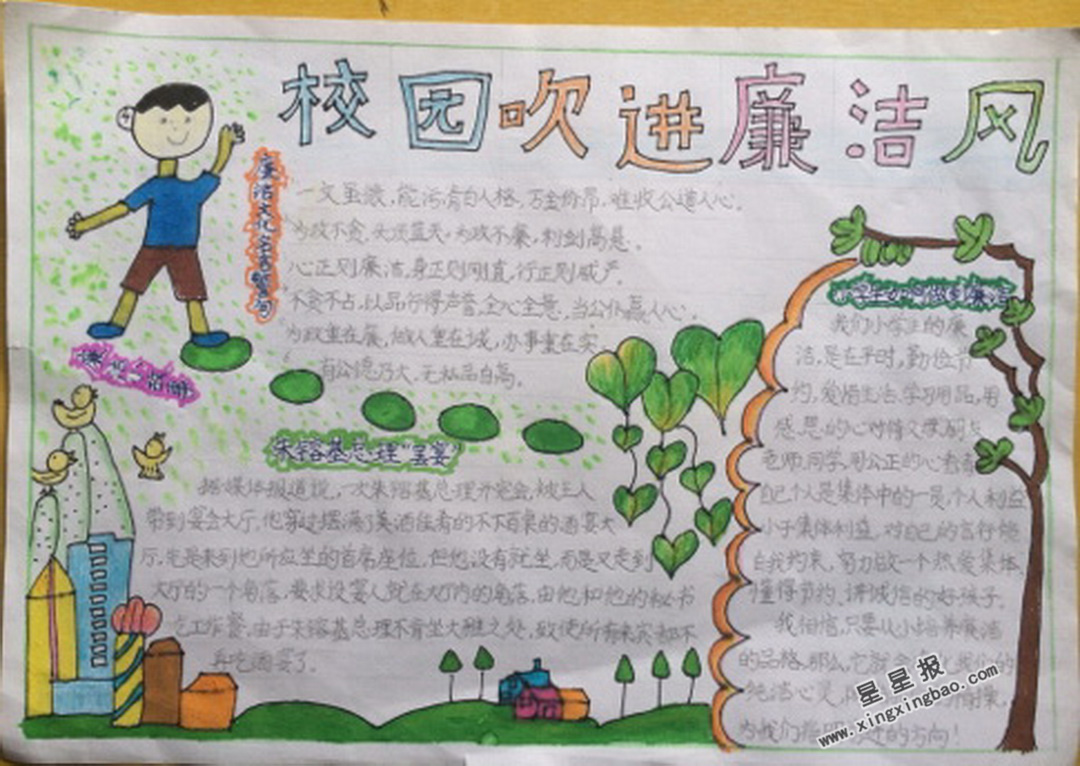 校园吹进廉洁风
廉洁文化名言警句
一文虽微，能污清白人格，万金价昂，难收公道人心。
为政不贪，头顶蓝天，为政不廉，利剑高悬。
心正则廉洁，身正则刚直，行正则威严
不贪不占，以品行得声誉，全心全意，当公仆赢人心。
为政重在廉，做人重在诚，办事重在实。
有公德乃大，无私品自高。
廉洁小故事
朱镕基总理“罢宴”
据媒体报道说，一次朱镕基总理开完会，被主人
带到宴会大厅，他穿过摆满了美酒佳肴的不下百桌的酒宴大
厅，先是来到他所应坐的首席座位，但他没有就坐，而是又走到
大厅的一个角落，要求设宴人就在大厅内的角落，由他和他的秘书
吃工作餐，由于朱镕基总理不肯坐大雅之处，致使所有来宾都不
再吃酒宴了。
小学生如何做到廉洁
我们小学生的廉
洁，是在平时，勤俭节
约，爱惜生活、学习用品，用
感恩的心对待父母朋友
老师、同学，用公正的心看待
自己个人是集体中的一员，个人利益
小于集体利益，对自己的言行能
自我约束，努力做一个热爱集体，
懂得节约，讲诚信的好孩子。
我相信，只要从小培养廉洁
的品格，那么，它就会 我们的
纯洁心灵， 情操，
为我们指明 进的方向！
星星报
www.xingxingbao.com